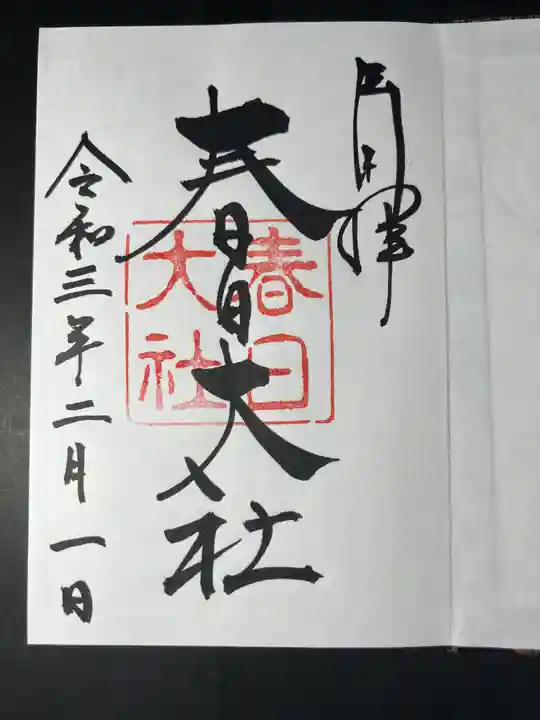 奉拝
春日大社
春日
大社
令和三年二月一日